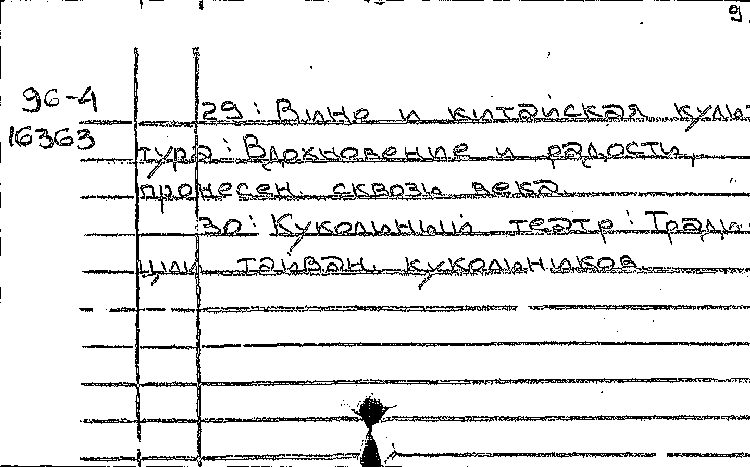 9
96-4
16363
29: Вино и китайская куль
тура: Вдохновение и радости,
пронесен. сквозь века.
30: Кукольный театр: Тради-
ции тайван. кукольников.